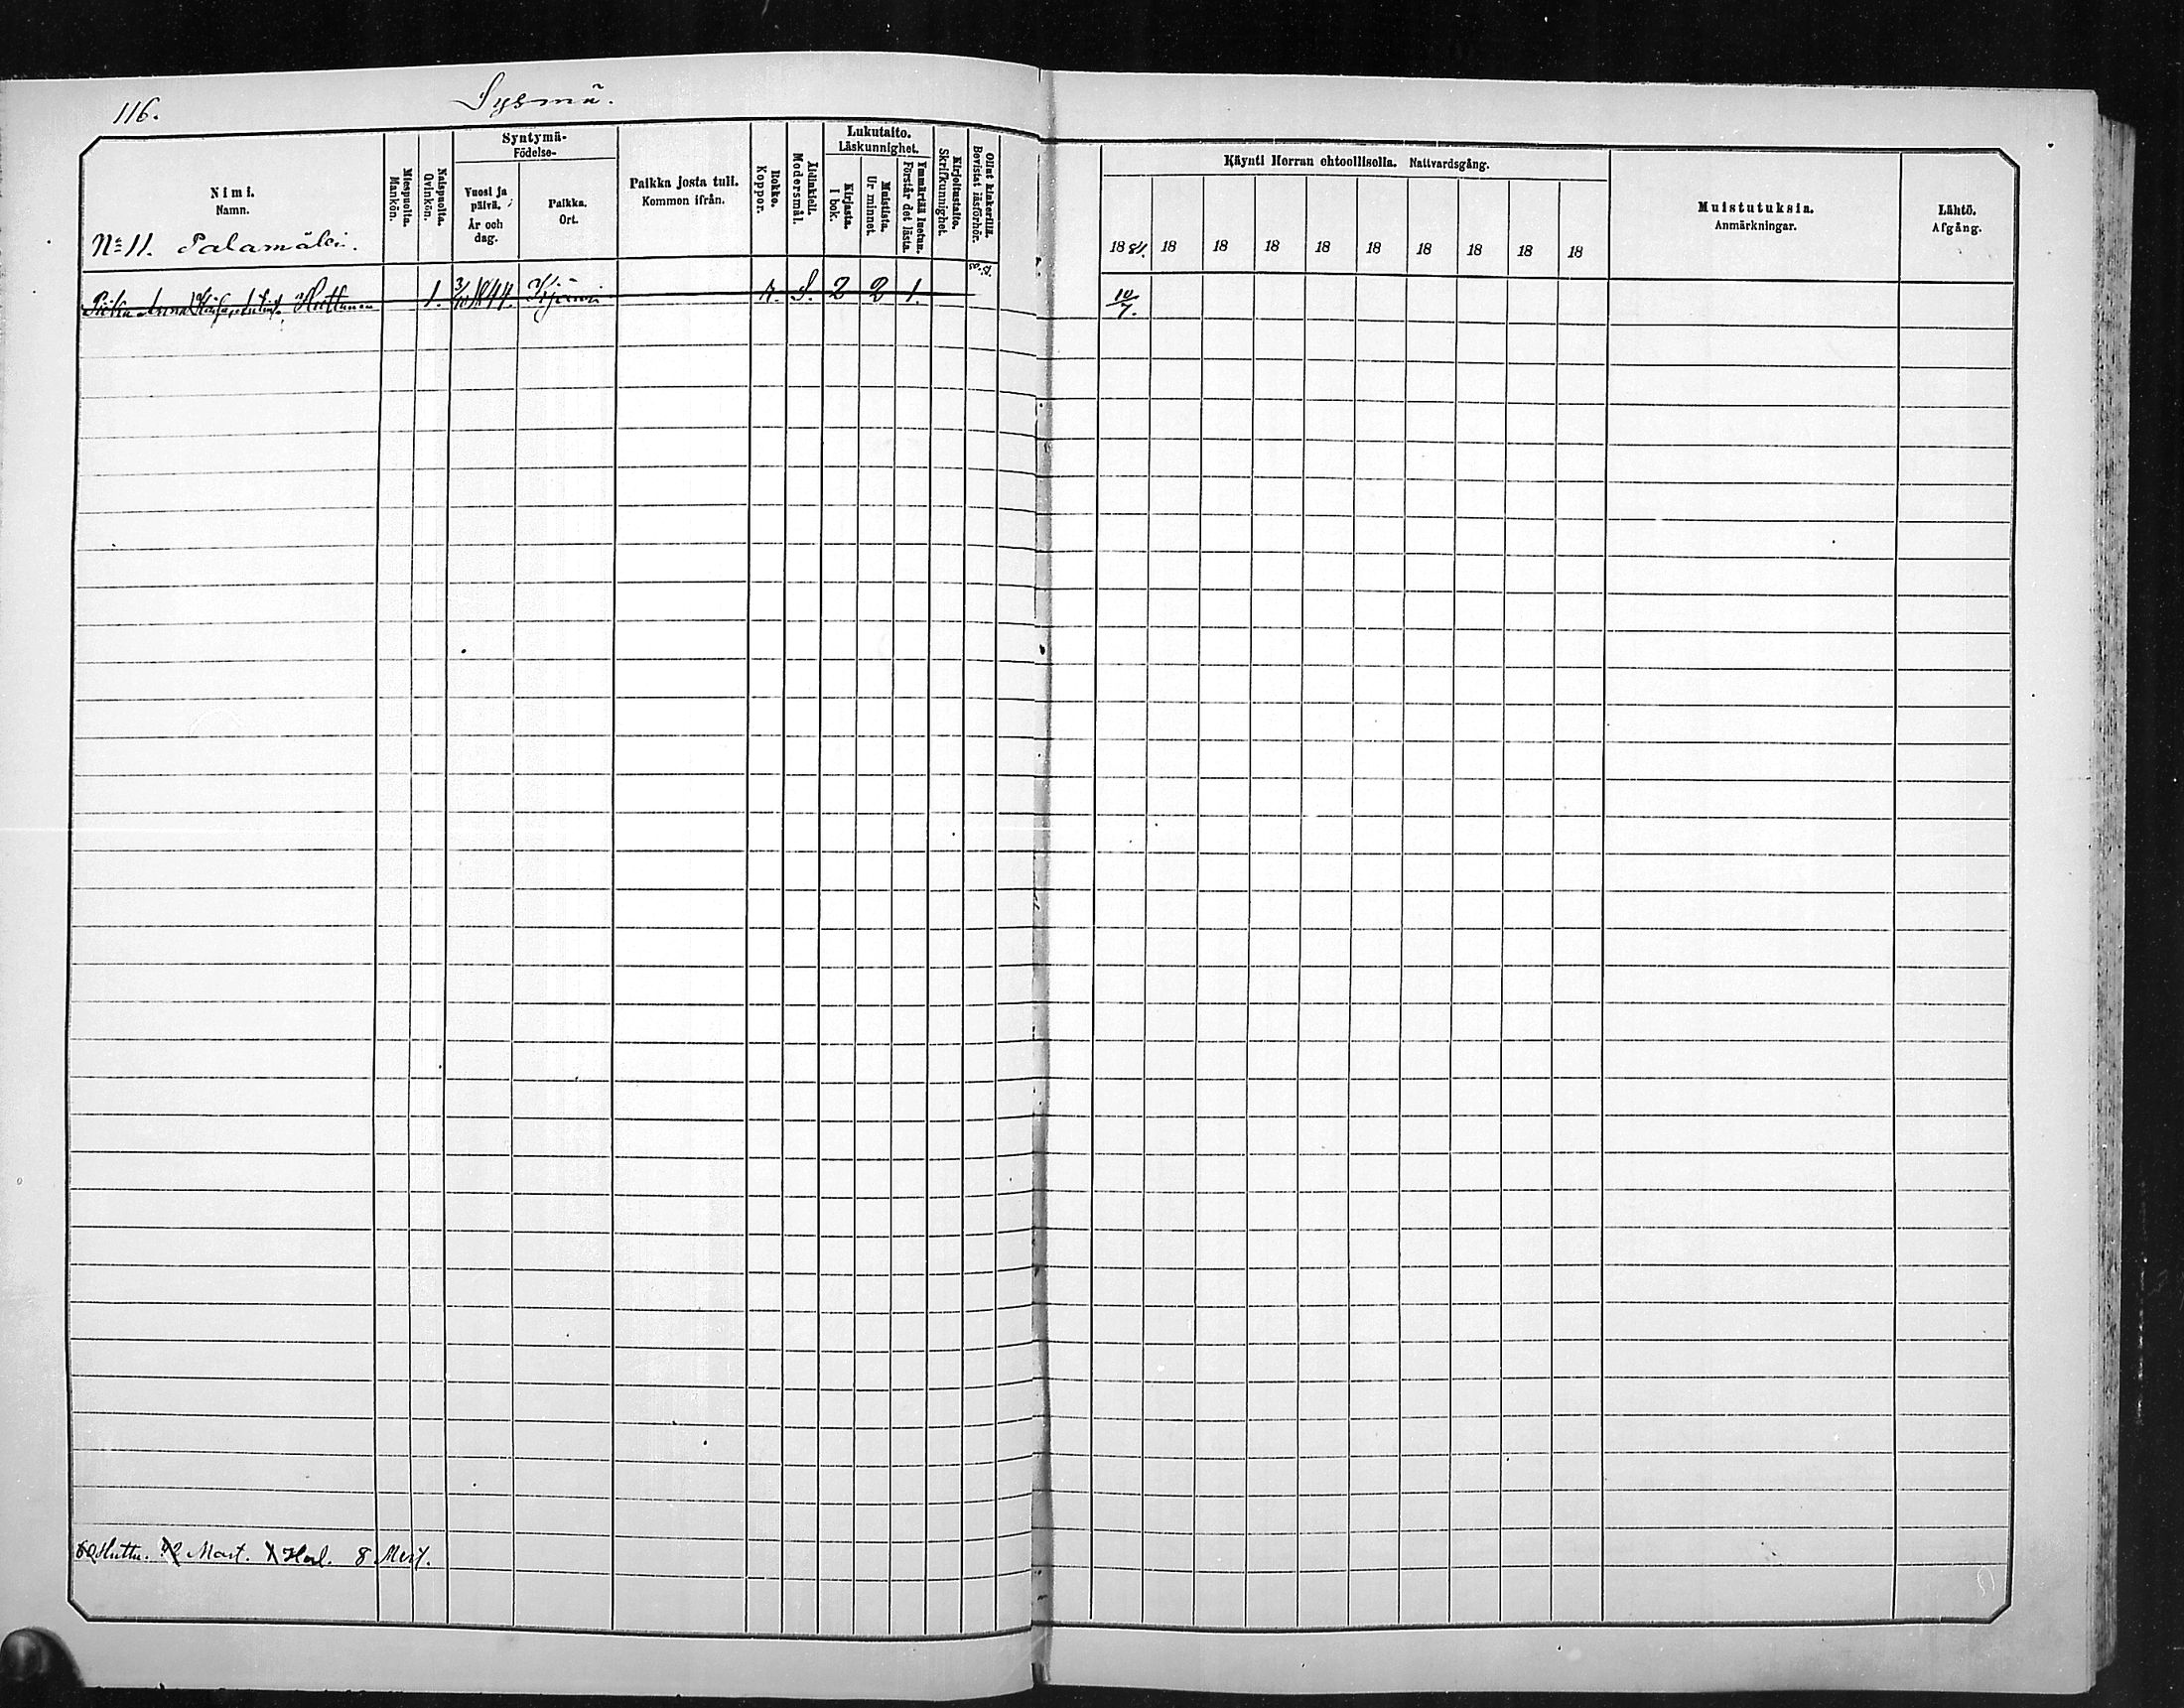 116.
Sysmä.
Nimi.
Namn.
Miespuolta.
Mankön.
Naispuolta.
Qvinkön.
Syntymä-
Födelse-
Vuosi ja
päivä.
År och
dag.
Paikka.
Ort.
Paikka josta tuli.
Kommen ifrån.
Rokko.
Koppor.
Äidinkieli.
Modersmål.
Lukutaito.
Läskunnighet.
Kirjasta.
I bok.
Muistista.
Ur minnet.
Ymmärtää luetun.
Förstår det lästa.
Kirjoitustaito.
Skrifkunnighet.
Ollut kinkerillä.
Bevistat läsförhör.
Käynti Herran ehtoollisella. Nattvardsgång.
1881. 18 18 18 18 18 18 18 18 18
Muistutuksia.
Anmärkningar.
Lähtö.
Afgång.
No 11. Palamäki.
Piika Anna Huttunen 1. 1844. r. S. 2 2 1. 10/7.
Huttu. Mart. Harl. 8 Meri.